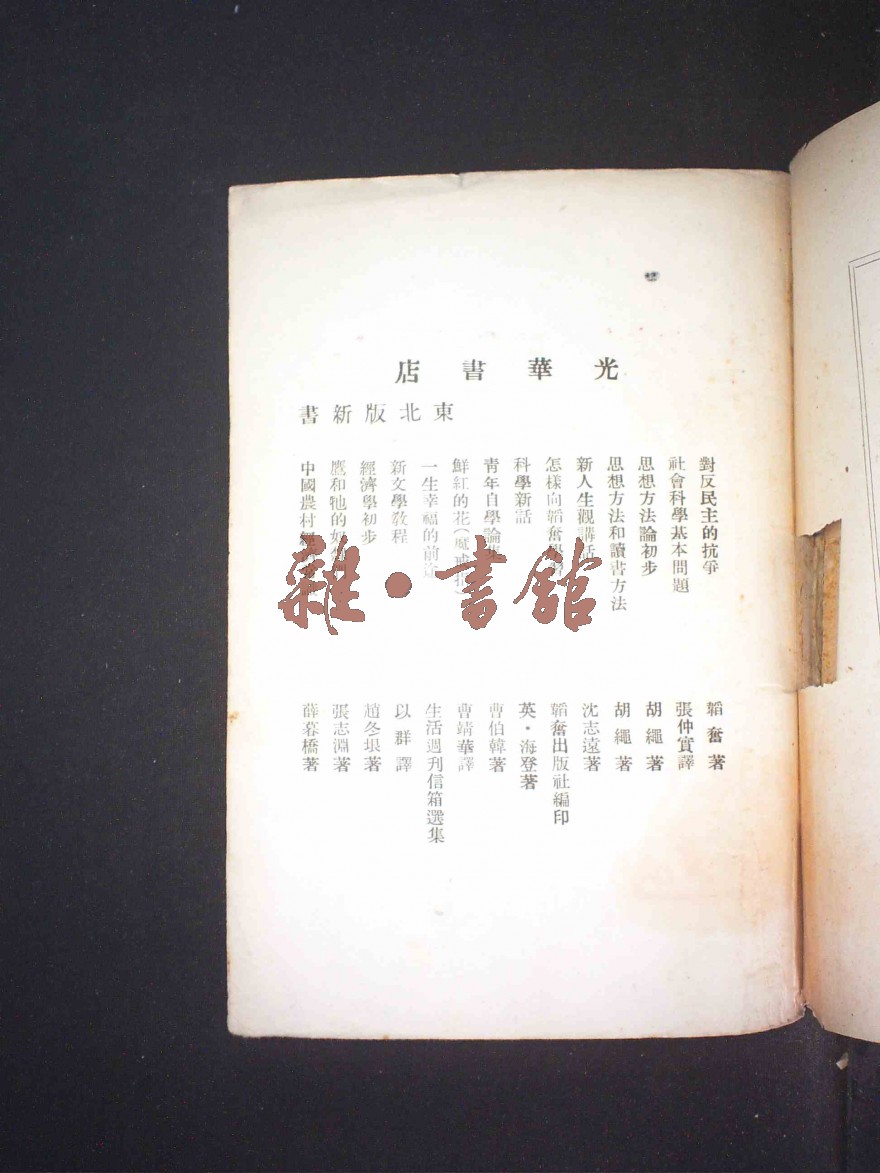 光華書店
東北版新書
對反民主的抗爭 韜奮著
社會科學基本問題 張仲實譯
思想方法論初步 胡繩著
思想方法和讀書方法 胡繩著
新人生觀講話 沈志遠著
怎樣向韜奮 韜奮出版社編印
科學新話 英・海登著
青年自學論 曹伯韓著
鮮紅的花(魔戒指) 曹靖華譯
一生幸福的前途 生活週刊信箱選集
新文學教程 以群譯
經濟學初步 趙冬垠著
鷹和牠的奴 張志淵著
中國農村 薛暮橋著
雜・書館